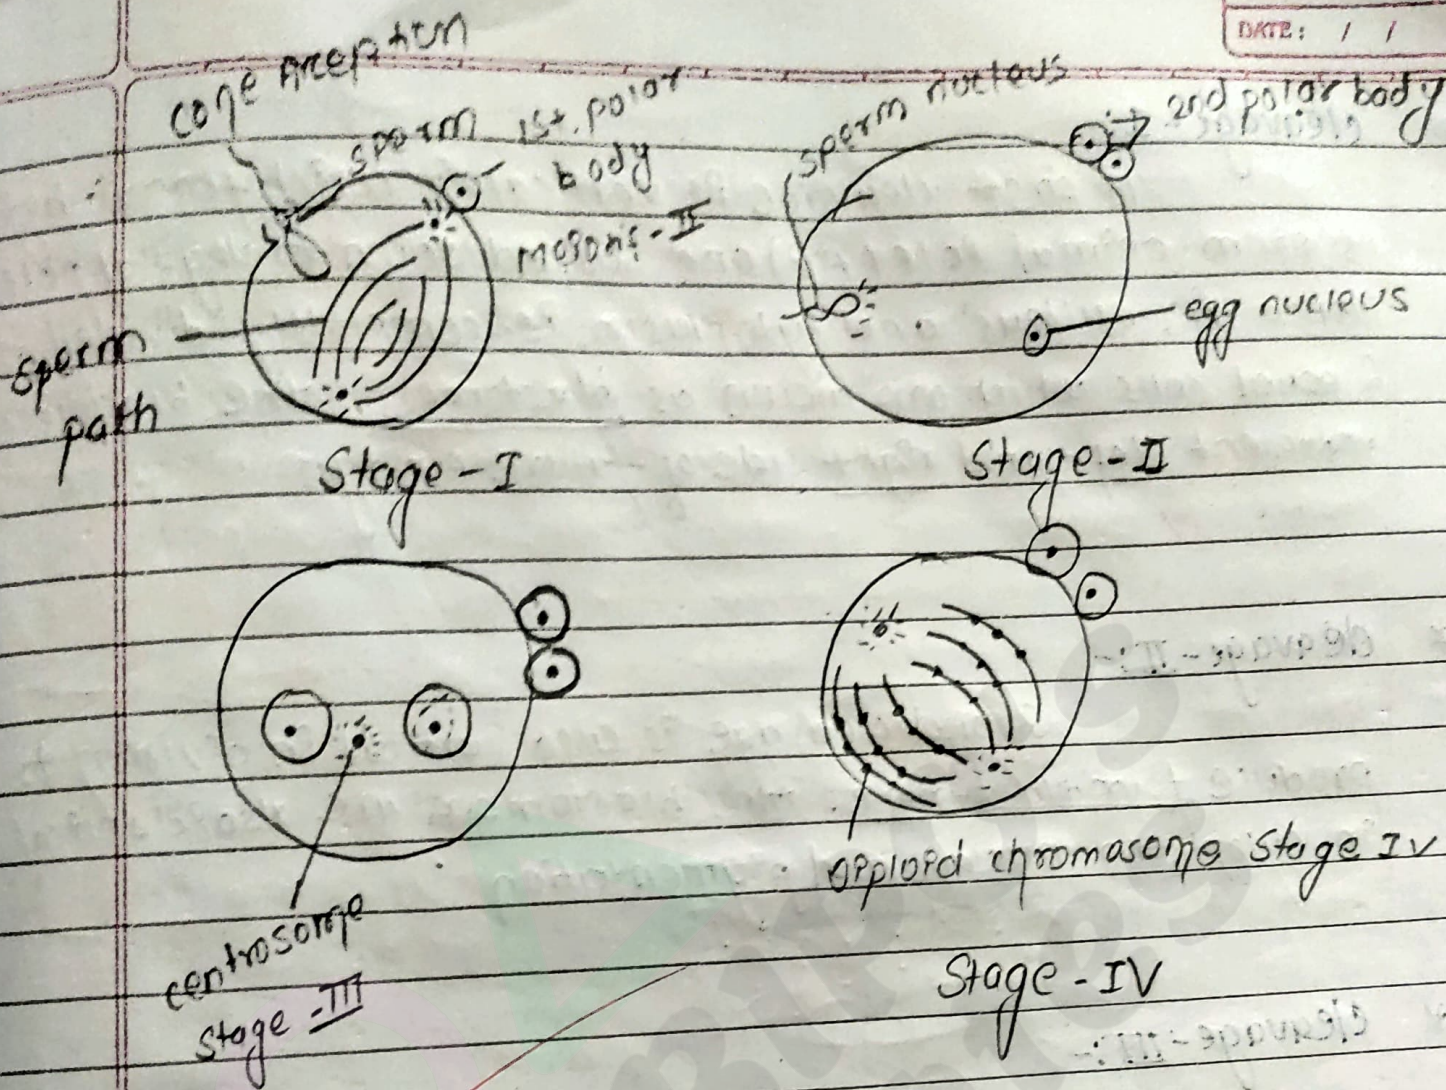 DATE: / /
cone Areption
sperm
1st. polar
body
meiosis-II
sperm
path
Stage-I
sperm nucleus
2nd polar body
egg nucleus
Stage-II
centrosome
Stage-III
dipploid chromasome Stage IV
Stage-IV